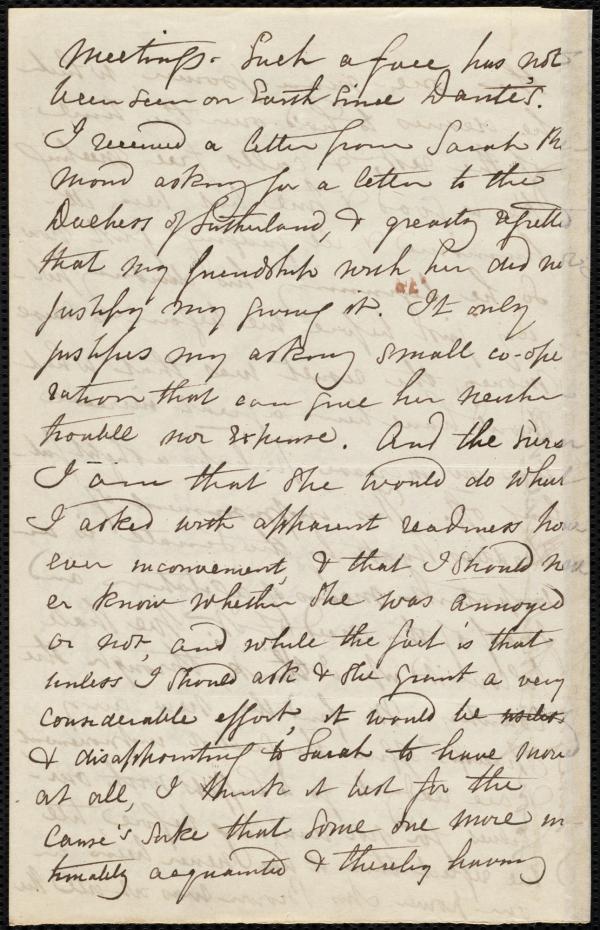 meetings. Such a face has not
been seen on Earth since Dante's.
I received a letter from Sarah Re
mond asking for a letter to the
Duchess of Sutherland, & greatly regrette
that my friendship with her did no
justify my giving it. It only
justifies my asking small co-ope
ration that can give her neither
trouble nor expense. And the surer
I am that she would do what
I asked with apparent readiness how
ever inconvenient, & that I should n
er know whether she was annoyed
or not, and while the fact is that
unless I should ask & she grant a very
considerable effort, it would be useless
& disappointing to Sarah to have move
at all, I think it best for the
cause's sake that some one more in
timately acquainted & thereby having